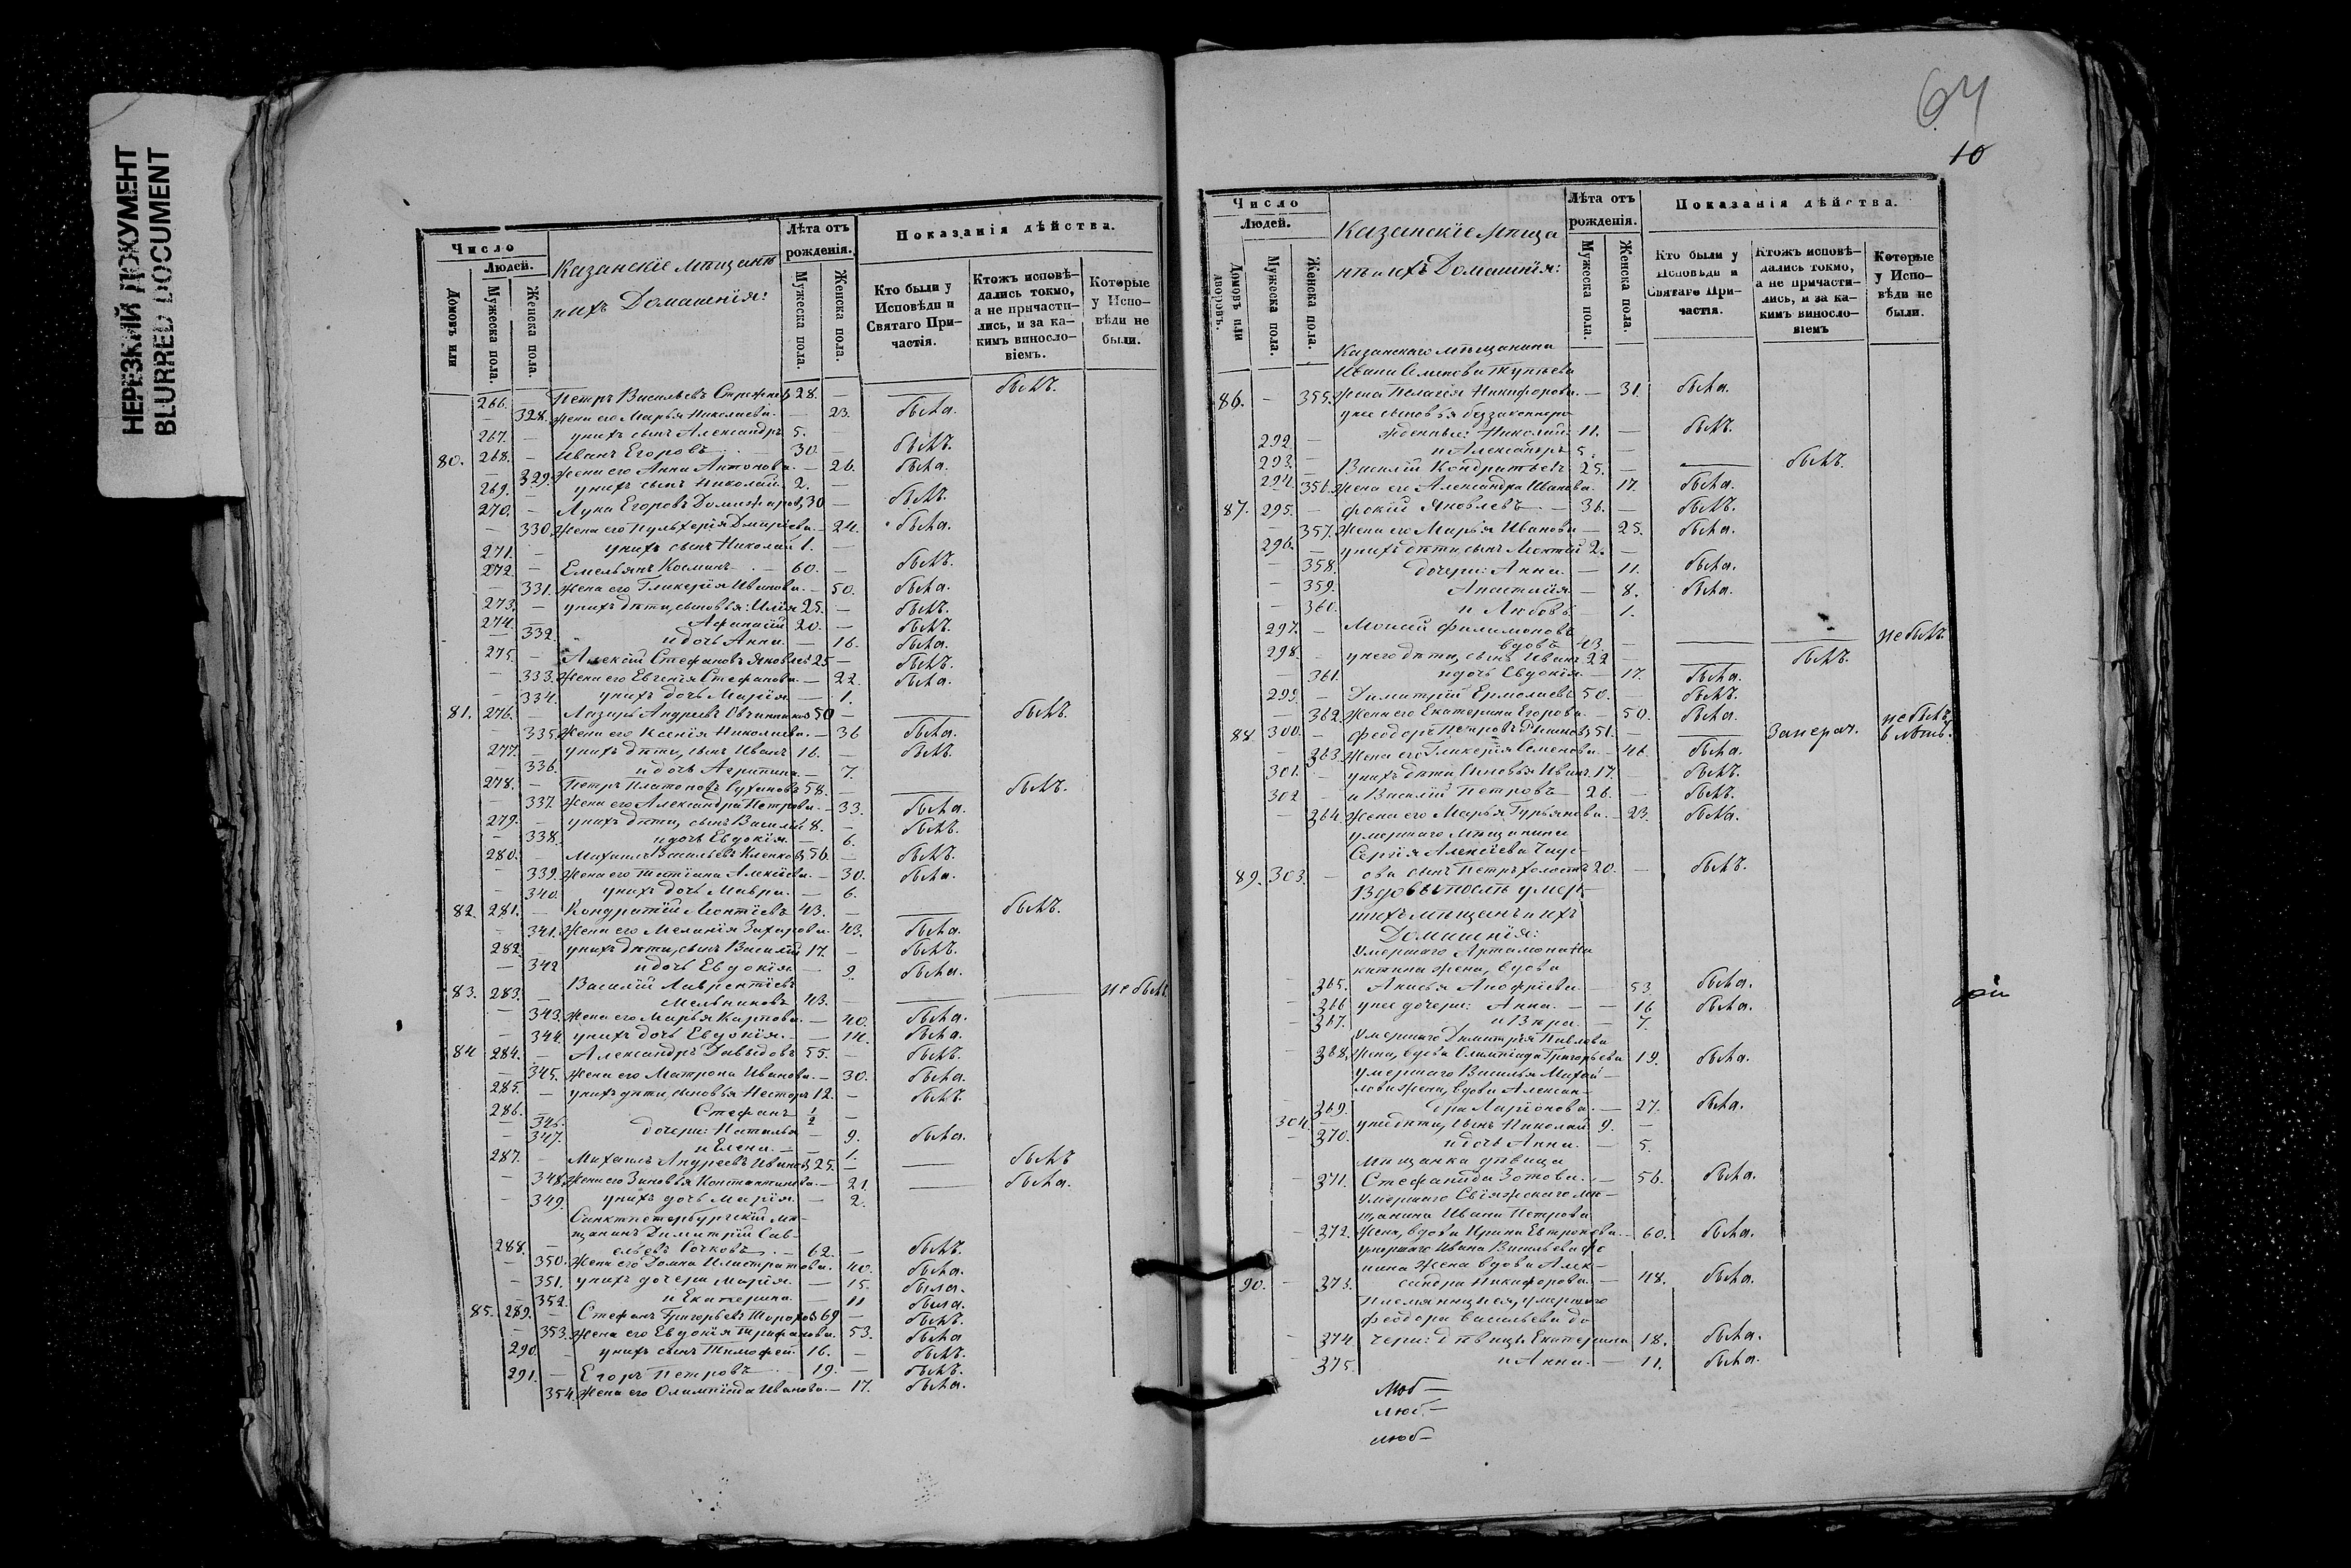 НЕРЕЗКИЙ ДОКУМЕНТ
BLURRED DOCUMENT
Число
Людей.
Домовъ или
Мужеска пола.
Женска пола.
Казанскіе мѣщане
и ихъ Домашнія:
Лѣта отъ рожденія.
Мужеска пола.
Женска пола.
Показанія дѣйства.
Кто были у Исповѣди и Святаго Причастія.
Ктожъ исповѣдались токмо, а не причастились, и за какимъ винословіемъ.
Которые у Исповѣди не были.
266. — Петръ Васильевъ 28. — — былъ.
— 328. Жена его Марья Николаева. — 23. была.
267. — у нихъ сынъ Александръ 5. —
80. 268. — Иванъ Егоровъ — 30. — былъ.
— 329. Жена его Анна Антонова. — 26. была.
269. — у нихъ сынъ Николай 2. —
270. — Лука Егоровъ 30 — былъ.
— 330. Жена его Пульхерія Дмитріева. — 24. была.
271. — у нихъ сынъ Николай 1. —
272 — Емельянъ Косминъ — 60. — былъ.
— 331. Жена его Гликерія Иванова. — 50. была.
273. — у нихъ дѣти, сыновья: Илія 25. — былъ.
274. — Афанасій 20. — былъ.
— 332. и дочь Анна. — 16. была.
275. — Алексій Стефановъ Яковлевъ 25 — былъ.
— 333. Жена его Евгенія Стефанова. — 22. была.
— 334. у нихъ дочь Марія. — 1.
81. 276. — Лазарь Андреевъ Овчинниковъ 50 — — былъ.
— 335. Жена его Ксенія Николаева. — 36 была.
277. — у нихъ дѣти, сынъ Иванъ 16. — былъ.
— 336. и дочь Агрипина — 7.
278. — Петръ Платоновъ Сухановъ 58. — — былъ.
— 337. Жена его Александра Петрова. — 33. была.
279. — у нихъ дѣти, сынъ Василій 8. — былъ.
— 338. и дочь Евдокія. — 6.
280. — Михаилъ Васильевъ 56. — былъ.
— 339. Жена его Татіана Алексіева. — 30. была.
— 340. у нихъ дочь Мавра. — 6.
82. 281. — Кондратій Леонтіевъ 43. — — былъ.
— 341. Жена его Меланія Захарова. 43. была.
282. — у нихъ дѣти, сынъ Василій 17. — былъ.
— 342 и дочь Евдокія — 9. была.
83. 283. — Василій Лаврентіевъ
Мельниковъ 43. — — не былъ.
— 343. Жена его Марья Карпова. — 40. была.
— 344. у нихъ дочь Евдокія. — 14. была.
84 284. — Александръ Давыдовъ 55. — былъ.
— 345. Жена его Матрона Иванова. — 30. была.
285. — у нихъ дѣти, сыновья Несторъ 12. — былъ.
286. — Стефанъ 1/2 —
— 346. дочери: Наталья — 9. была.
— 347. и Елена. — 1.
287. — Михаилъ Андреевъ Ивановъ 25. — — былъ
— 348. Жена его Зиновья Константинова. — 21. — была.
— 349. у нихъ дочь Марія. — 2.
Санктпетербургскій мѣ-
щанинъ Димитрій Сав-
288. — ельевъ Сочковъ — 62. — былъ.
— 350. Жена его Домна Илистратова. 40. была.
— 351. у нихъ дочери Марія. — 15. была.
— 352. и Екатерина. — 11 была.
85. 289. — Стефанъ Григорьевъ Тороповъ 69 — былъ.
— 353. Жена его Евдокія Трифанова. 53. была
290. — у нихъ сынъ Тимофей. 16. — былъ.
291. — Егоръ Петровъ — 19. — былъ.
354. Жена его Олимпіада Иванова. — 17. была.
64
10
Число
Людей.
Домовъ или дворовъ.
Мужеска пола.
Женска пола.
Казанскіе Мѣща
не и ихъ Домашнія:
Лѣта отъ рожденія.
Мужеска пола.
Женска пола.
Показанія дѣйства.
Кто были у Исповѣди и Святаго Причастія.
Ктожъ исповѣдались токмо, а не причастились, и за какимъ винословіемъ
Которые у Исповѣди не были.
Казанскаго мѣщанина
Ивана Семенова
86. — 355. Жена Пелагія Никифорова. — 31. была.
у нее сыновья беззаконноро-
292. — жденные: Николай 11. — былъ.
293. — и Александръ 5. —
294. — Василій Кондратьевъ 25. — — былъ.
356. Жена его Александра Иванова. 17. была.
87. 295. — Фокій Яковлевъ — 36. — былъ.
— 357. Жена его Марья Иванова — 25. была.
296. — у нихъ дѣти, сынъ Леонтій 2. —
— 358. дочери: Анна. — 11. была.
— 359. Анастасія — 8. была.
— 360. и Любовь. 1.
297. — Моисей Филимоновъ
вдовъ 43. — — — не былъ
298. — у него дѣти, сынъ Иванъ 22 — — былъ.
— 361. и дочь Евдокія. — 17. была.
299. — Димитрій Ермолаевъ 50. — былъ.
— 362. Жена его Екатерина Егорова. — 50. была.
88. 300. — Феодоръ Петровъ 51. — — не былъ
— 363. Жена его Гликерія Семенова. — 46. была.
301. — у нихъ дѣти сыновья Иванъ. 17. — былъ.
302 — и Василій Петровъ — 26. — былъ.
— 364. Жена его Марья Гурьянова. — 23. была.
умершаго Мѣщанина
Сергія Алексіева
89. 303. — сынъ Петръ холостъ 20. — былъ.
Вдовы послѣ умер-
шихъ мѣщанъ и ихъ
Домашнія:
Умершаго Артамона Ни
китина жена, вдова
— 365. Анисья Анофріева — 53. была.
— 366 у нее дочери: Анна. — 16 была.
— 367. и Вѣра. — 7.
Умершаго Димитрія Павлова
— 368. Жена, вдова Олимпіада Григорьева 19. была.
умершаго Василья Михай-
лова жена, вдова Алексан-
— 369. дра Ларіонова. — 27. была.
304. — у ней дѣти, сынъ Николай 9. —
— 370. и дочь Анна. — 5.
Мѣщанка дѣвица
— 371. Стефанида Зотова. — 56. была.
Умершаго Свіяжскаго мѣ-
щанина Ивана Петрова
— 372. Жена, вдова Ирина Евтропова. — 60. была.
умершаго Ивана Васильева Фо
нина жена вдова Алек-
90. — 373. сандра Никифорова. — 48. была.
Племянницы ея, умершаго
Феодора Васильева до
— 374. чери: дѣвицы Екатерина 18. была.
— 375. и Анна. — 11. была.